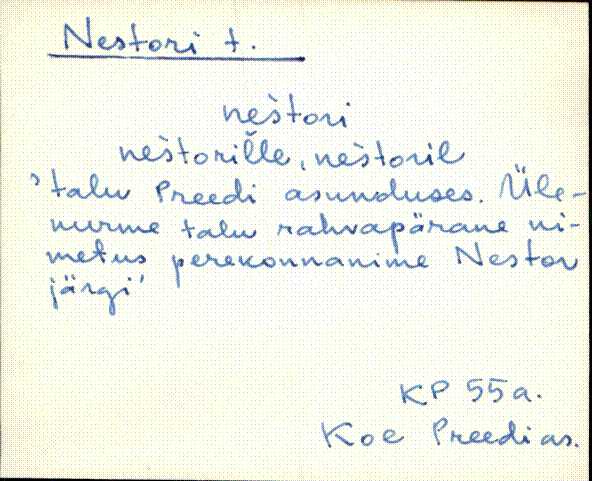 Nestori t.
nèstori
nèstorìlle, nèstoril
'talu Preedi asunduses. Üle-
nurme talu rahvapärane ni-
metus perekonnanime Nestor
järgi'
KP 55a.
Koe Preedi as.